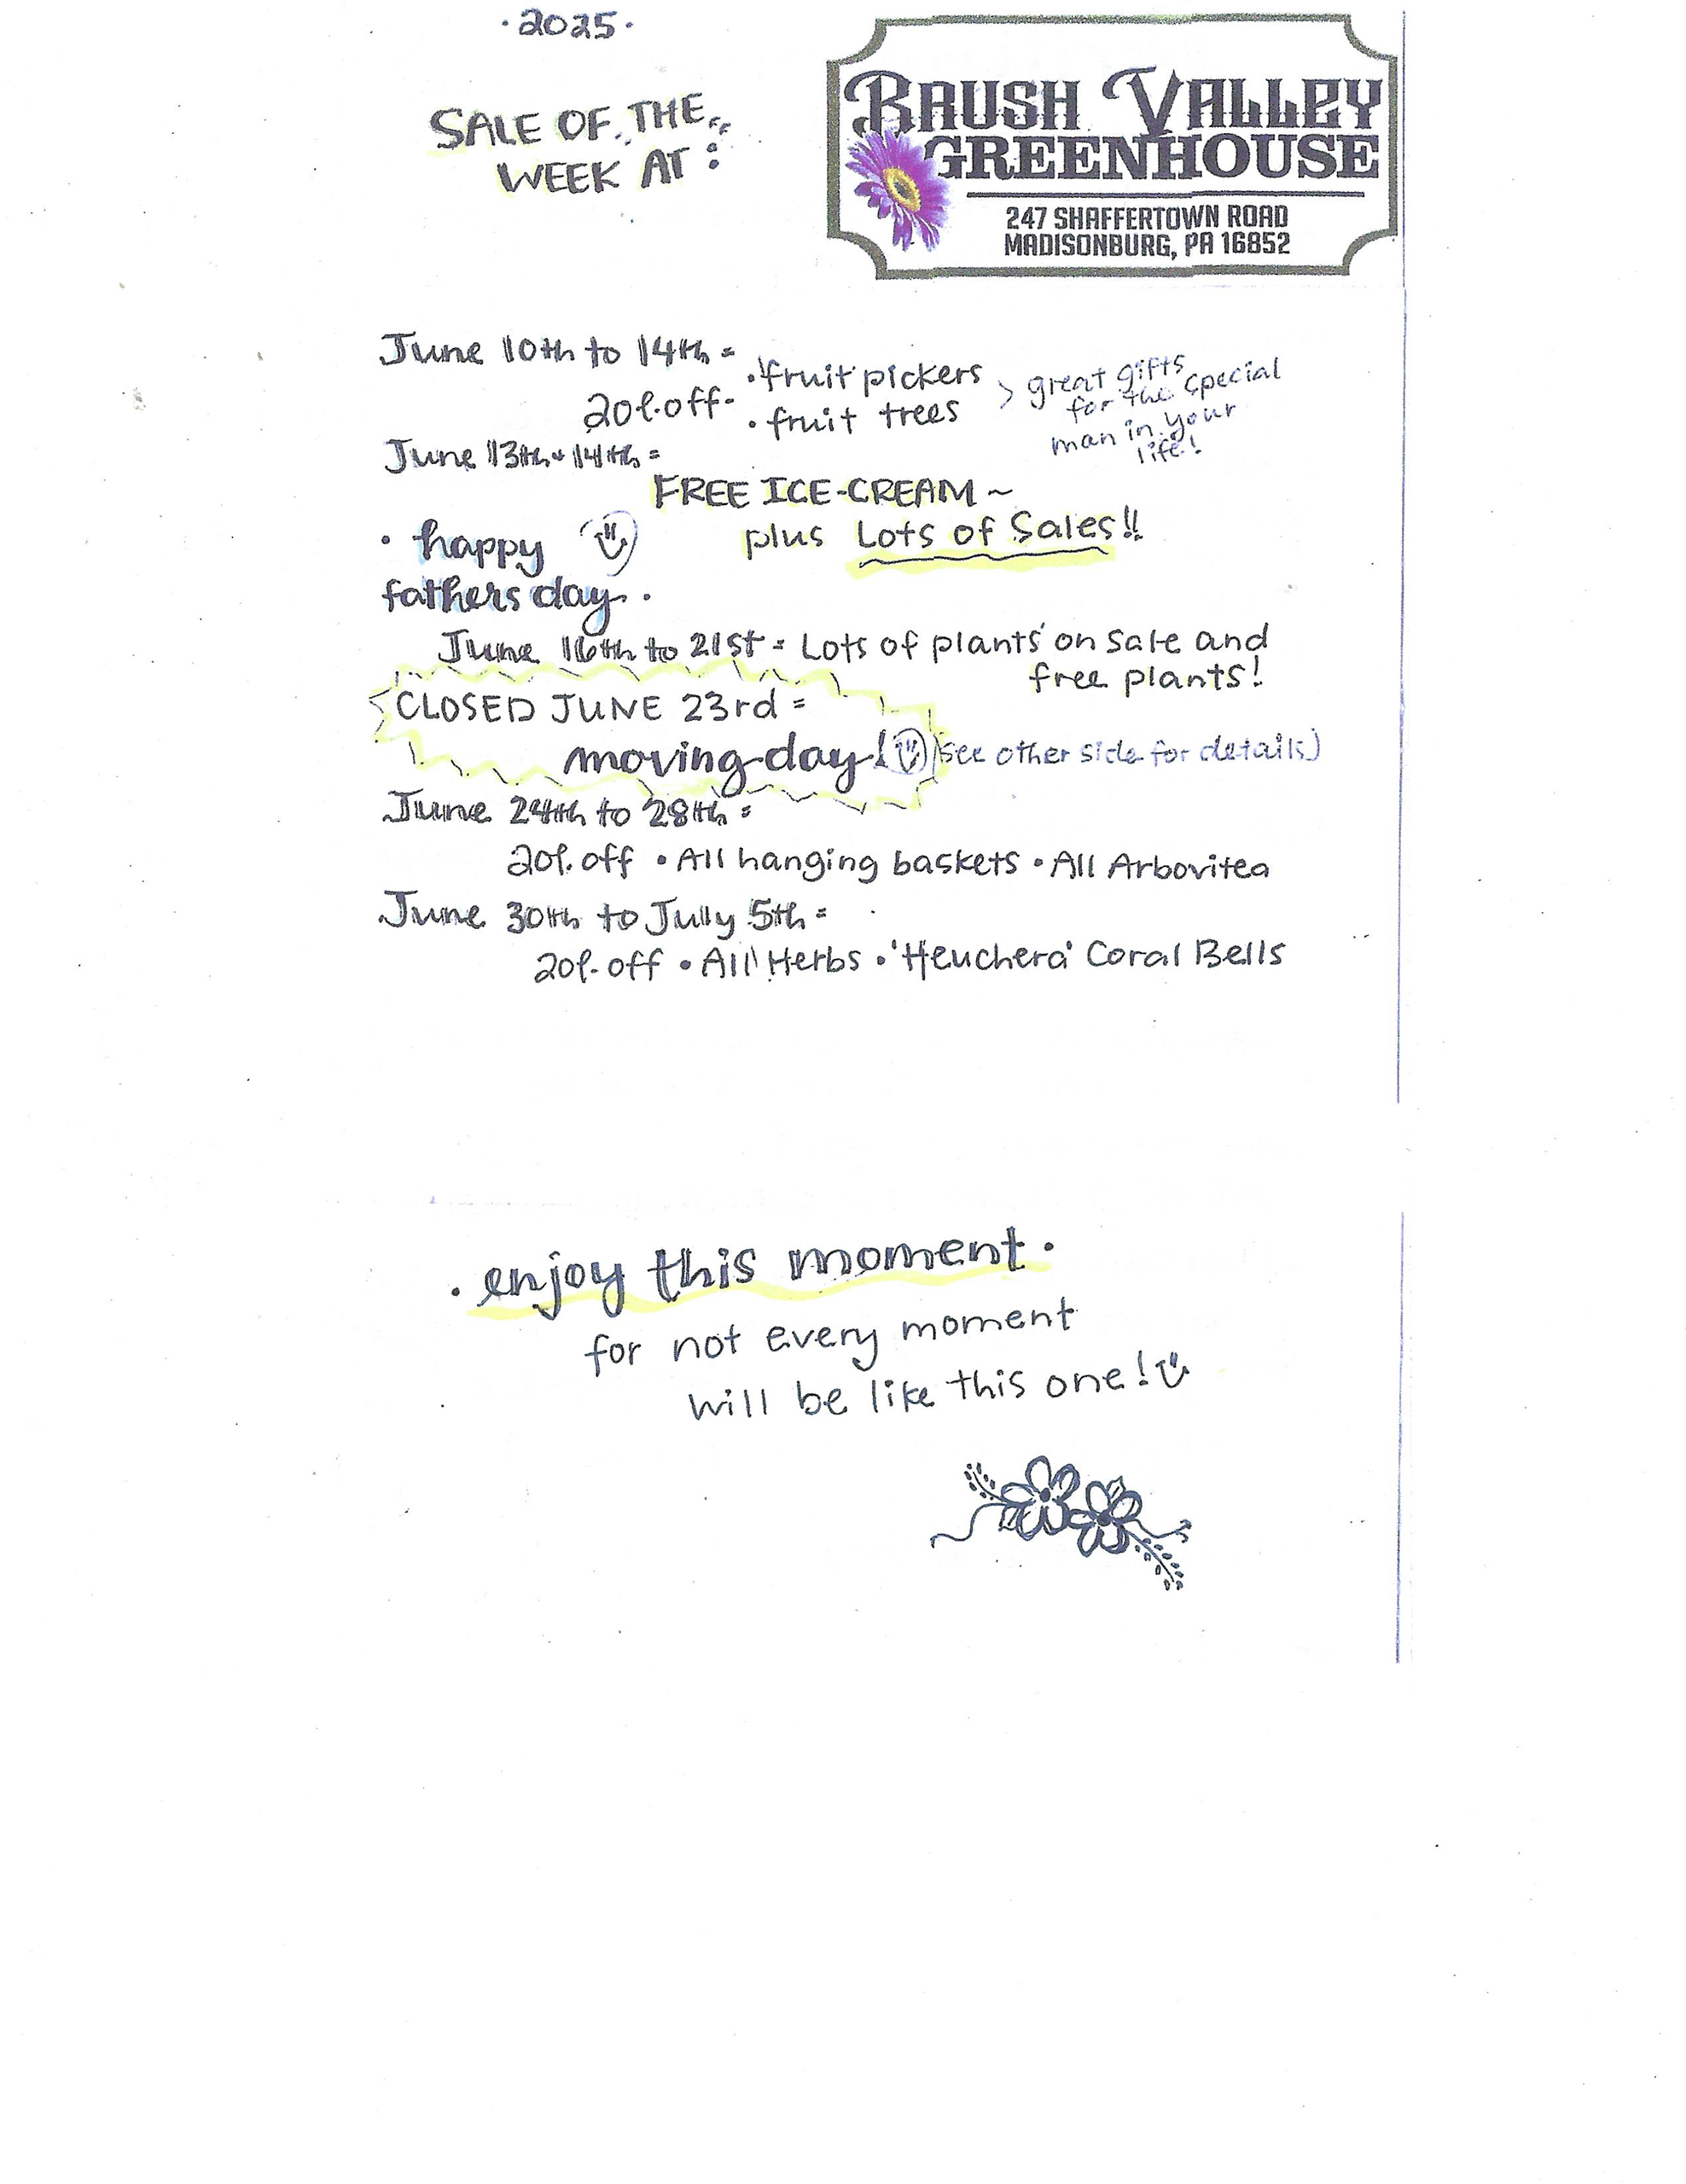 ·2025·
SALE OF THE
WEEK AT:
BRUSH VALLEY
GREENHOUSE
247 SHAFFERTOWN ROAD
MADISONBURG, PA 16852
June 10th to 14th =
20% off - • fruit pickers
• fruit trees
> great gifts
for the special
man in your
life!
June 13th + 14th =
FREE ICE-CREAM ~
plus Lots of Sales!!
• happy
fathers day •
June 16th to 21st = Lots of plants on sale and
free plants!
CLOSED JUNE 23rd =
moving day! (see other side for details)
June 24th to 28th =
20% off • All hanging baskets • All Arbovitea
June 30th to Jully 5th =
20% off • All Herbs • 'Heuchera' Coral Bells
• enjoy this moment •
for not every moment
will be like this one!